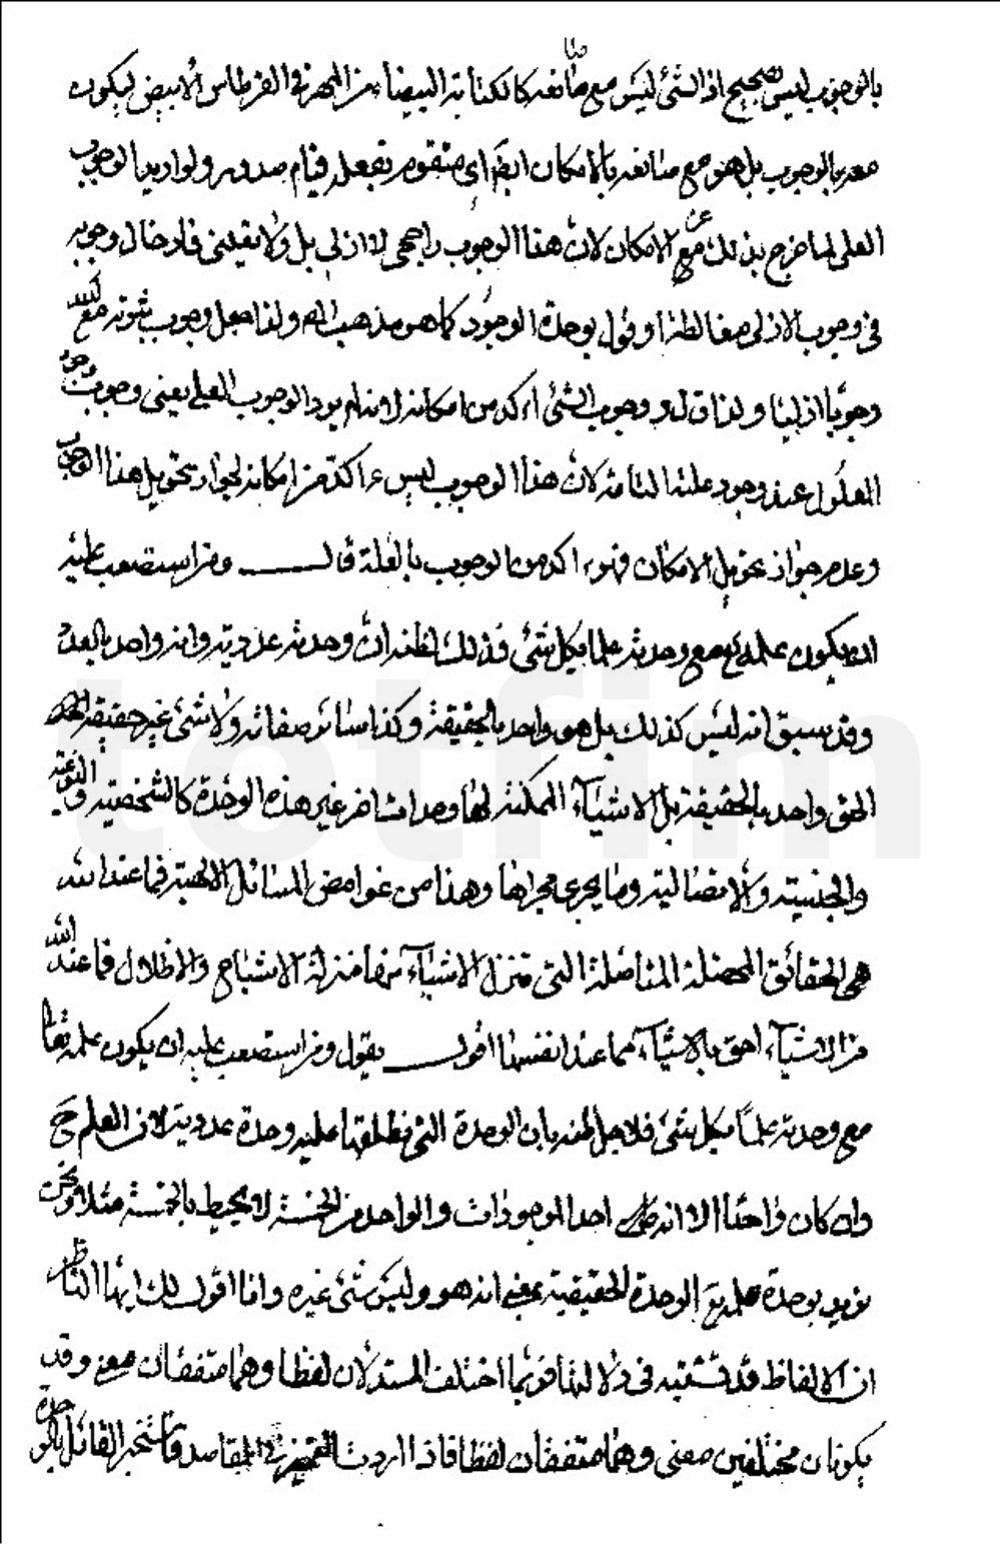 بالوجوب ليس بصحيح اذ الشئ ليس مع صانعه كالكتابة البيضاء من الحبر في القرطاس الأبيض ليكون
معه بالوجوب بل هو مع صانعه بالامكان ايضا اى متقوم بفعله قيام صدور ولو اريد الوجوب
العلى لما خرج بذلك عن الامكان لان هذا الوجوب راجحى لا ازلى بل ولا يقينى فادخال وجوبه
فى وجوب الازلى مغالطة او قول بوحدة الوجود كما هو مذهب المص ولذا جعل وجوب ثبوته مع الله
وجوبا ازليا ولذا قال ووجوب الشئ اكد من امكانه لانه لم يرد الوجوب العلى يعنى وجوب وجود
المعلول عند وجود علته التامة لان هذا الوجوب ليس ءاكد من امكانه لجواز تحويل هذا الوجوب
وعدم جواز تحويل الامكان فهو ءاكد من الوجوب بالعلة قال ومن استصعب عليه
ان يكون علمه تع مع وحدته علما بكل شئ فذلك لظنه ان وحدته عددية وانه واحد بالعدد
وقد سبق انه ليس كذلك بل هو واحد بالحقيقة وكذا سائر صفاته ولا شئ غير حقيقة
الحق واحد بالحقيقة بل الاشياء الممكنة لها وحدات اخر غير هذه الوحدة كالشخصية والنوعية
والجنسية والاتصالية وما يجرى مجراها وهذا من غوامض المسائل الالهية فما عند الله
هى الحقائق المحصلة المتاصلة التى تنزل الاشياء منها منزلة الاشباح والاظلال فما عند الله
من الاشياء احق بالاشياء مما عند انفسها اقول يقول ومن استصعب عليه ان يكون علمه تعالى
مع وحدته علما بكل شئ فلاجل ظنه بان الوحدة التى نطلقها عليه وحدة عددية لان العلم ح
وان كان واحدا الا انه احد الموجودات والواحد من الخمسة لا يحيط بالخمسة مثلا ونحن
نريد بوحدة علمه تع الوحدة الحقيقية بمعنى انه هو وليس شئ غيره وانا اقول لك ايها الناظر
ان الالفاظ قد تشتبه فى دلالتها فربما اختلف المستدلان لفظا وهما متفقان معنى وقد
يكونان مختلفين معنى وهما متفقان لفظا فاذا اردت التمييز فى المقاصد فاستخبر القائل بالوحدة